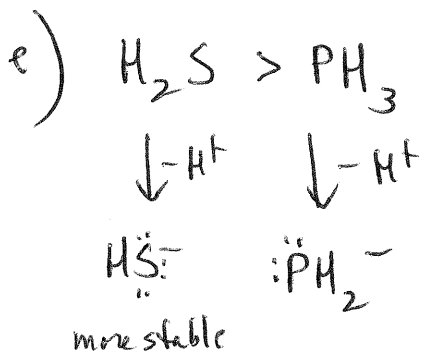 e) H₂S > PH₃
-H⁺ -H⁺
HS:⁻ :PH₂⁻
more stable